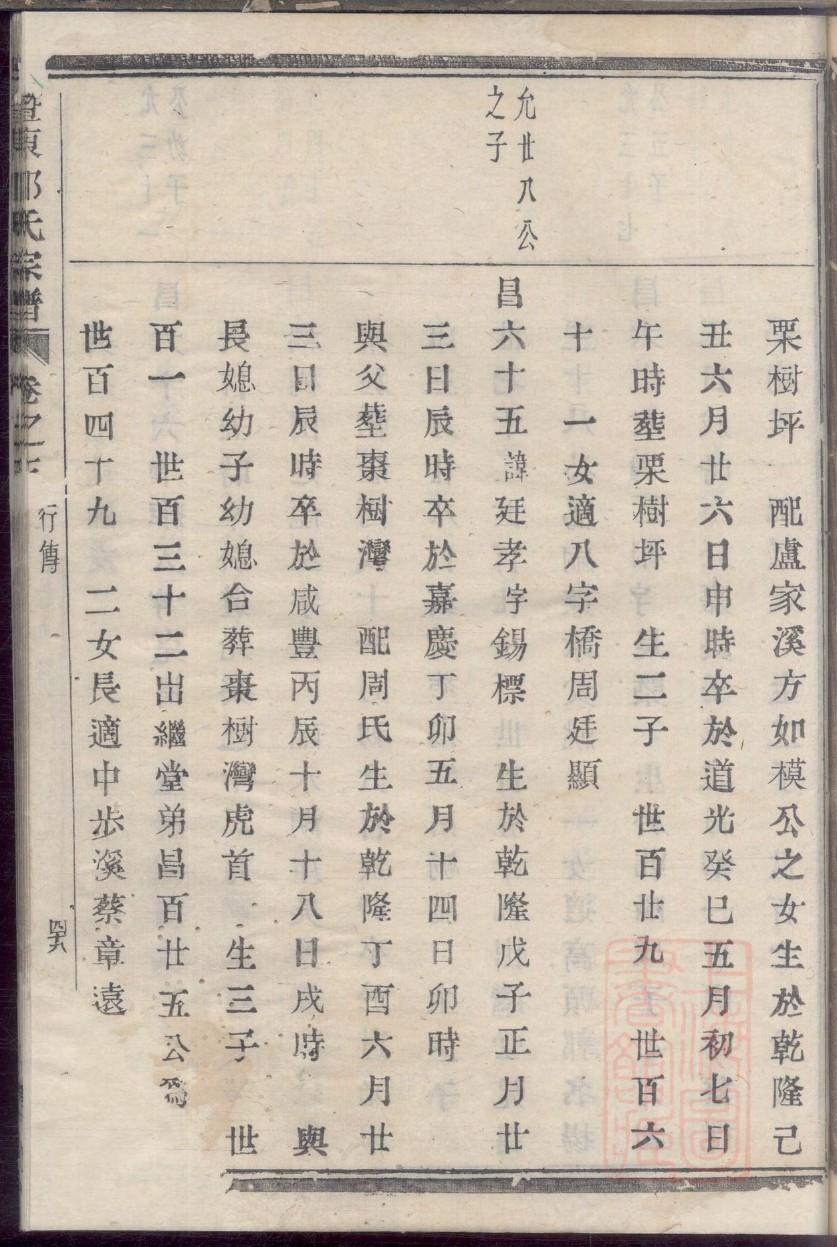 允廿八公
之子
栗樹坪 配盧家溪方如模公之女生於乾隆己
丑六月廿六日申時卒於道光癸巳五月初七日
午時塟栗樹坪 生二子 世百廿九 世百六
十 一女適八字橋周廷顯
昌六十五諱廷孝字錫標 生於乾隆戊子正月廿
三日辰時卒於嘉慶丁卯五月十四日卯時
與父塟棗樹灣 配周氏生於乾隆丁酉六月廿
三日辰時卒於咸豐丙辰十月十八日戌時 與
長媳幼子幼媳合葬棗樹灣虎首 生三子 世
百一 世百三十二出繼堂弟昌百廿五公為
世百四十九 二女長適中步溪蔡章遠
暨東 氏宗譜 卷之 行傳 四六